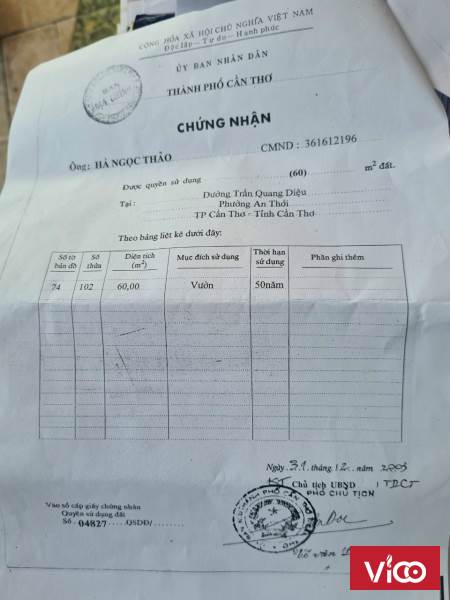 CỘNG HÒA XÃ HỘI CHỦ NGHĨA VIỆT NAM
Độc lập - Tự do - Hạnh phúc
ỦY BAN NHÂN DÂN
THÀNH PHỐ CẦN THƠ
CHỨNG NHẬN
CMND : 361612196
Ông : HÀ NGỌC THẢO
Được quyền sử dụng (60) m² đất.
Đường Trần Quang Diệu
Tại : Phường An Thới
TP Cần Thơ - Tỉnh Cần Thơ
Theo bảng liệt kê dưới đây:
Số tờ bản đồ Số thửa Diện tích (m²) Mục đích sử dụng Thời hạn sử dụng Phần ghi thêm
74 102 60,00 Vườn 50năm
Ngày 31 tháng 12 năm 2003
KT Chủ tịch UBND TPCT
PHÓ CHỦ TỊCH
Vào sổ cấp giấy chứng nhận
Quyền sử dụng đất
Số 04827 QSDĐ/
Võ văn
ViCO